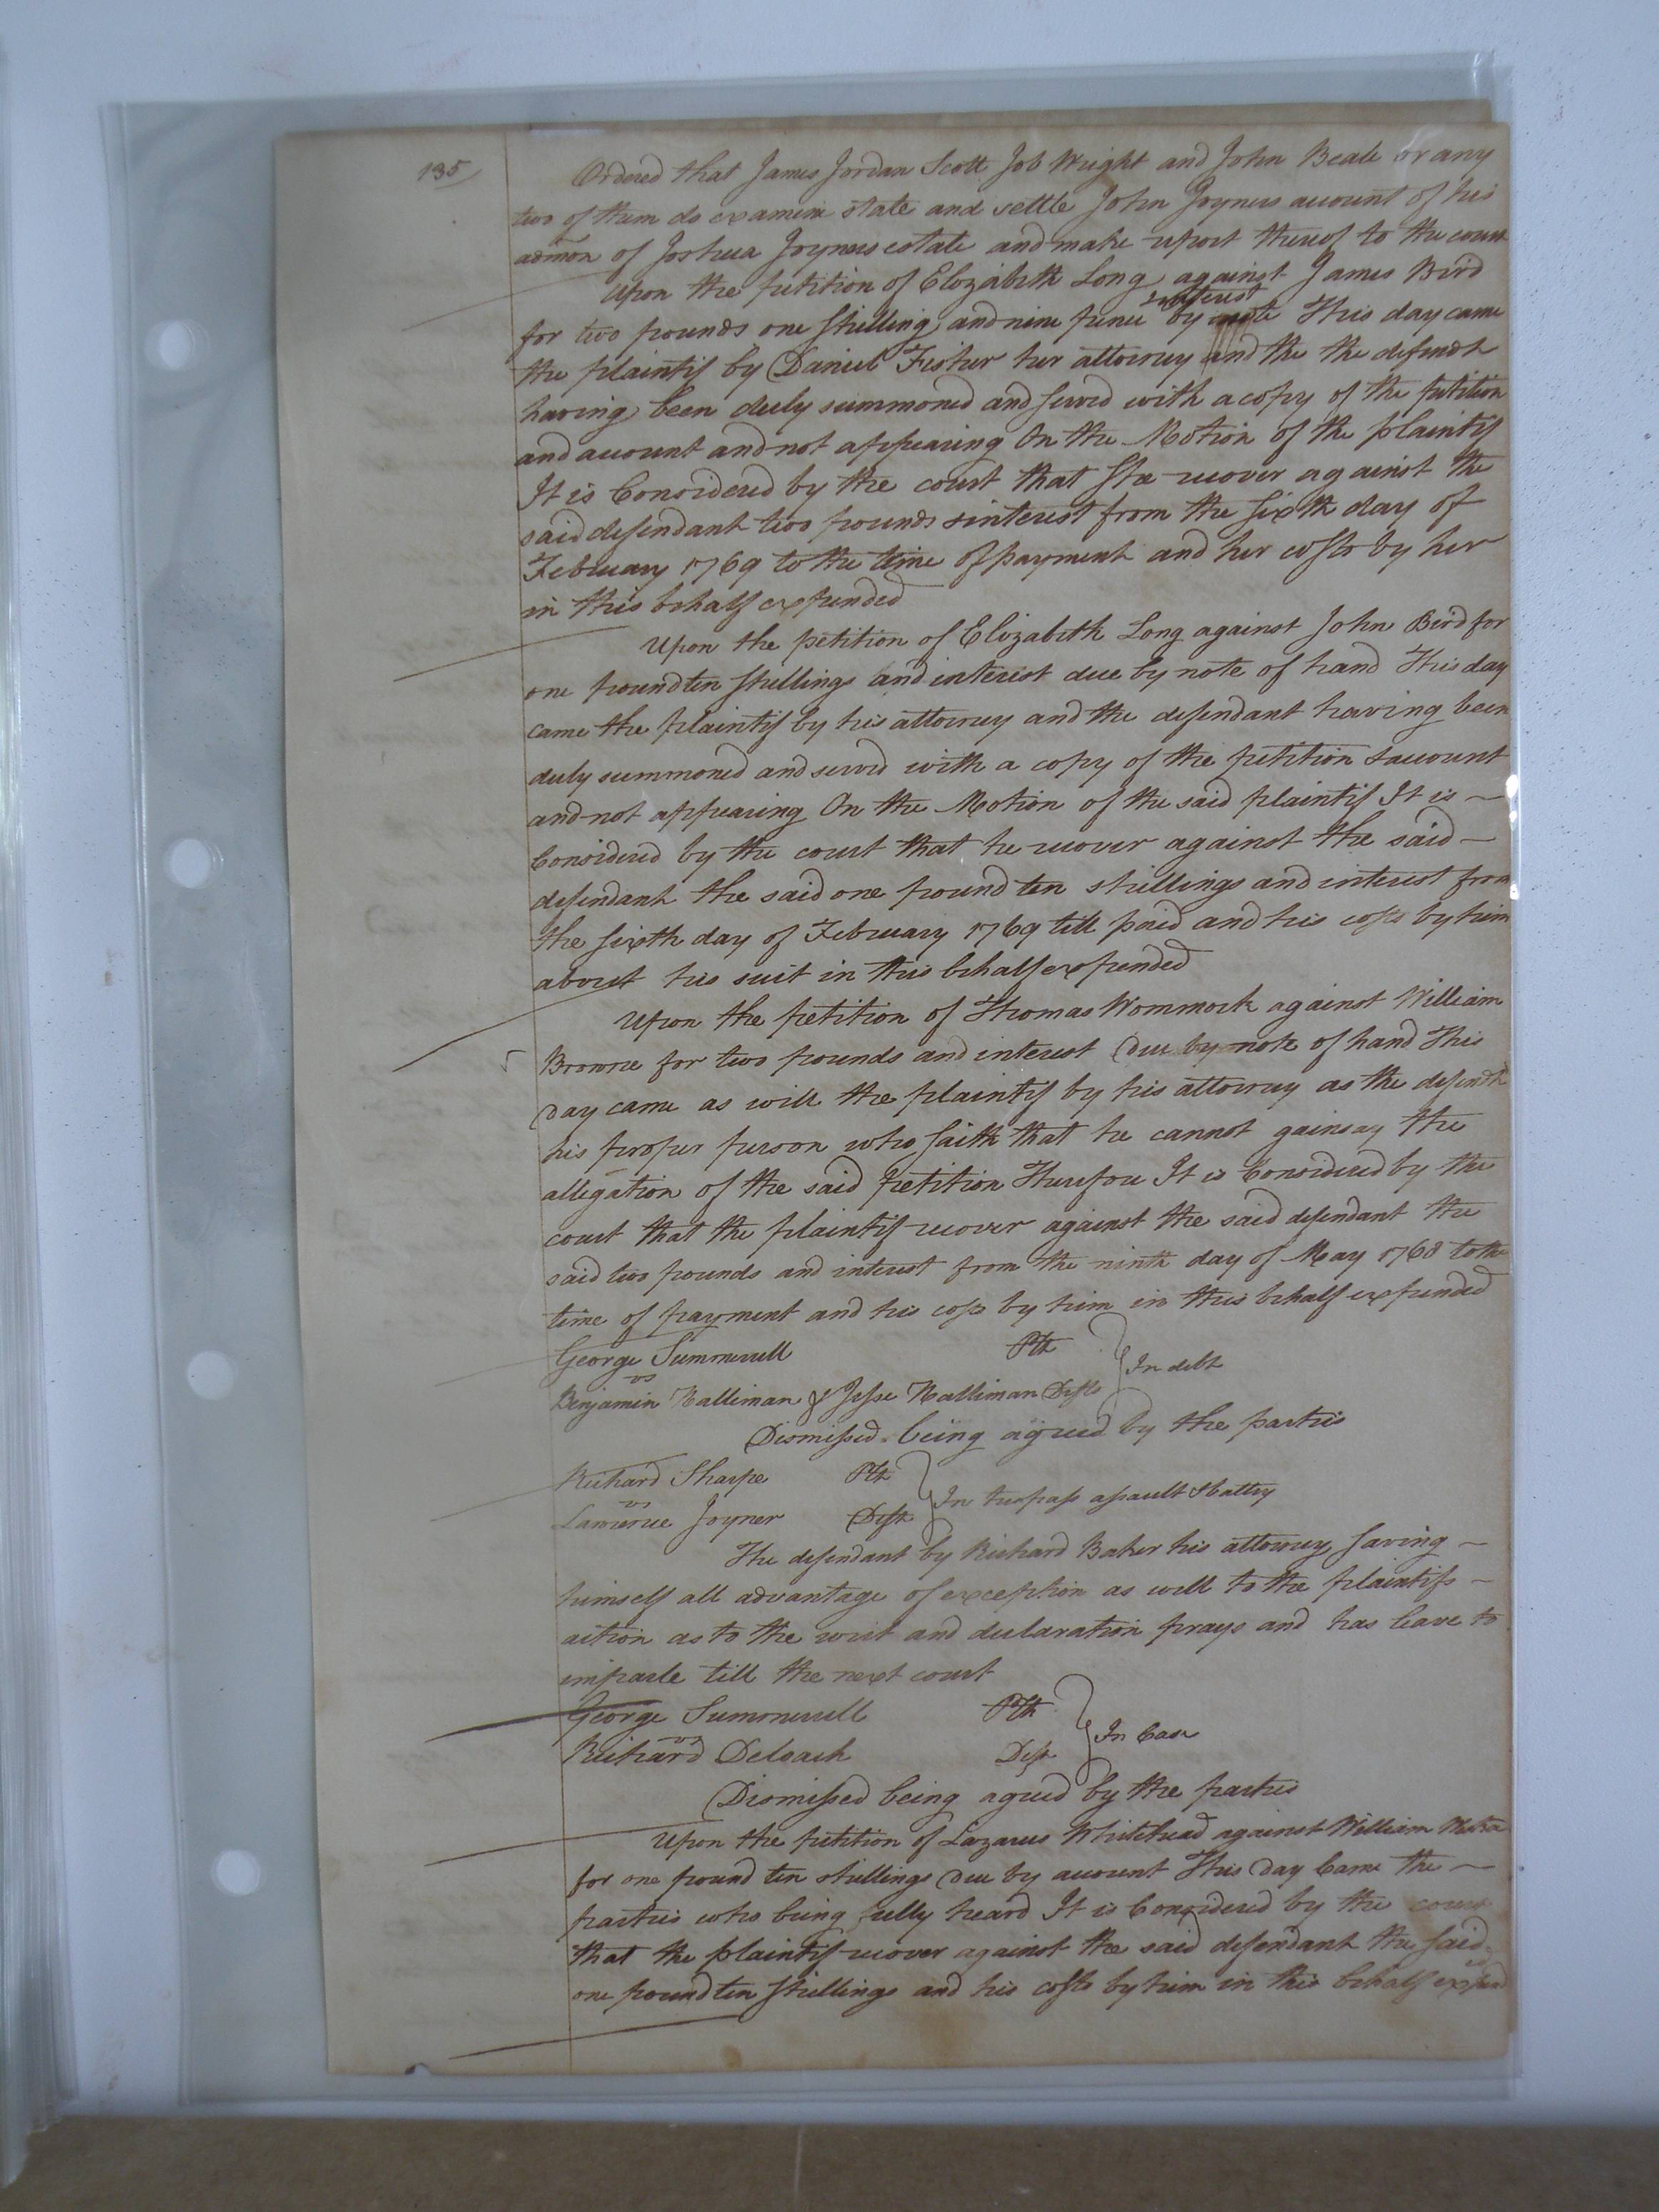 135
Ordered that James Jordan Scott Job Wright and John Beale or any
two of them do examine state and settle John Joyners account of his
admon of Joshua Joyners estate and make report thereof to the court
Upon the petition of Elizabeth Long against James Bird
for two pounds one shilling and nine pence interest by note This day came
the plaintif by Daniel Fisher her attorney and the the defendt
having been duly summoned and served with a copy of the petition
and account and not appearing On the Motion of the plaintif
It is Considered by the court that she recover against the
said defendant two pounds & interest from the sixth day of
February 1769 to the time of payment and her costs by her
in this behalf expended
Upon the petition of Elizabeth Long against John Bird for
one pound ten shillings and interest due by note of hand This day
came the plaintif by his attorney and the defendant having been
duly summoned and served with a copy of the petition & account
and not appearing On the Motion of the said plaintif It is
Considered by the court that he recover against the said
defendant the said one pound ten shillings and interest from
the sixth day of February 1769 till paid and his costs by him
about his suit in this behalf expended
Upon the petition of Thomas Wommock against William
Browne for two pounds and interest due by note of hand This
day came as well the plaintif by his attorney as the defendt
his proper person who saith that he cannot gainsay the
allegation of the said petition Therefore It is Considered by the
court that the plaintif recover against the said defendant the
said two pounds and interest from the ninth day of May 1768 to the
time of payment and his costs by him in this behalf expended
George Summerell Plt
vs In debt
Benjamin Halliman & Jesse Halliman Defts
Dismissed being agreed by the parties
Richard Sharpe Plt
vs In trespass assault & battery
Lawrence Joyner Deft
The defendant by Richard Baker his attorney saving
himself all advantage of exception as well to the plaintifs
action as to the writ and declaration prays and has leave to
imparle till the next court
George Summerell Plt
vs In Case
Richard Deloach Deft
Dismissed being agreed by the parties
Upon the petition of Lazarus Whitehead against William
for one pound ten shillings due by account This day Came the
parties who being fully heard It is Considered by the court
that the plaintif recover against the said defendant the said
one pound ten shillings and his costs by him in this behalf expend